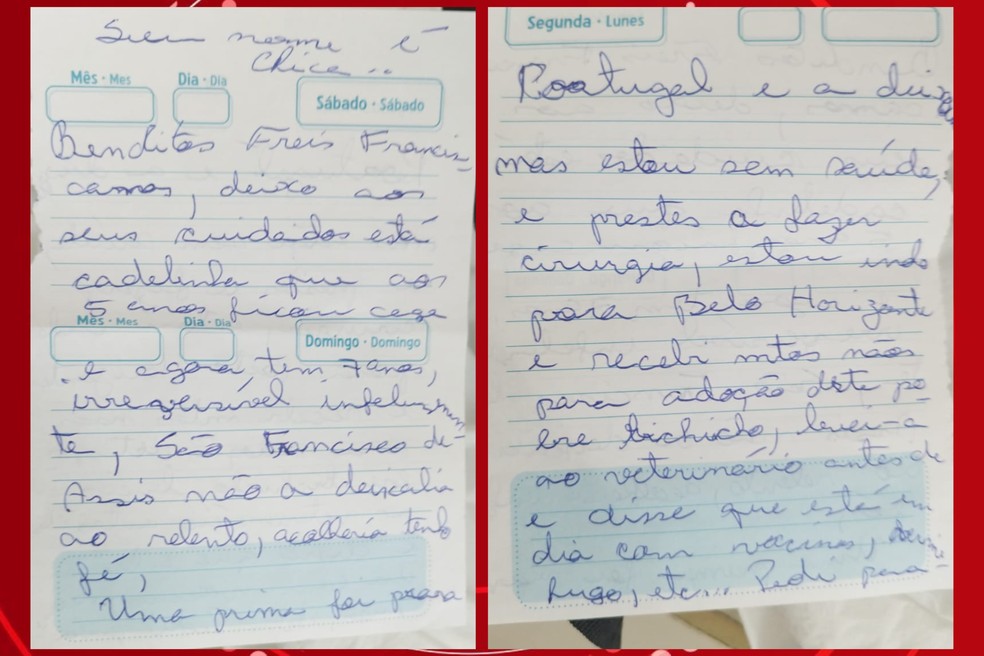 Seu nome é
Chica...
Mês • Mes
Dia • Dia
Sábado • Sábado
Benditos Freis Francis-
canos, deixo aos
seus cuidados está
cadelinha que aos
5 anos ficou cega
Mês • Mes
Dia • Dia
Domingo • Domingo
e agora tem 7 anos,
infelizmen
te, São Francisco de
Assis não a deixaria
ao relento, acolheria tenho
fé,
Uma prima foi para
Segunda • Lunes
Portugal e a deixou
mas estou sem saúde,
e prestes a fazer
cirurgia, estou indo
para Belo Horizonte
e recebi mtos nãos
para adoção deste po-
bre bichicho, levei-a
ao veterinário antes de
e disse que está em
dia com vacinas,
fugo, etc... Pedi para